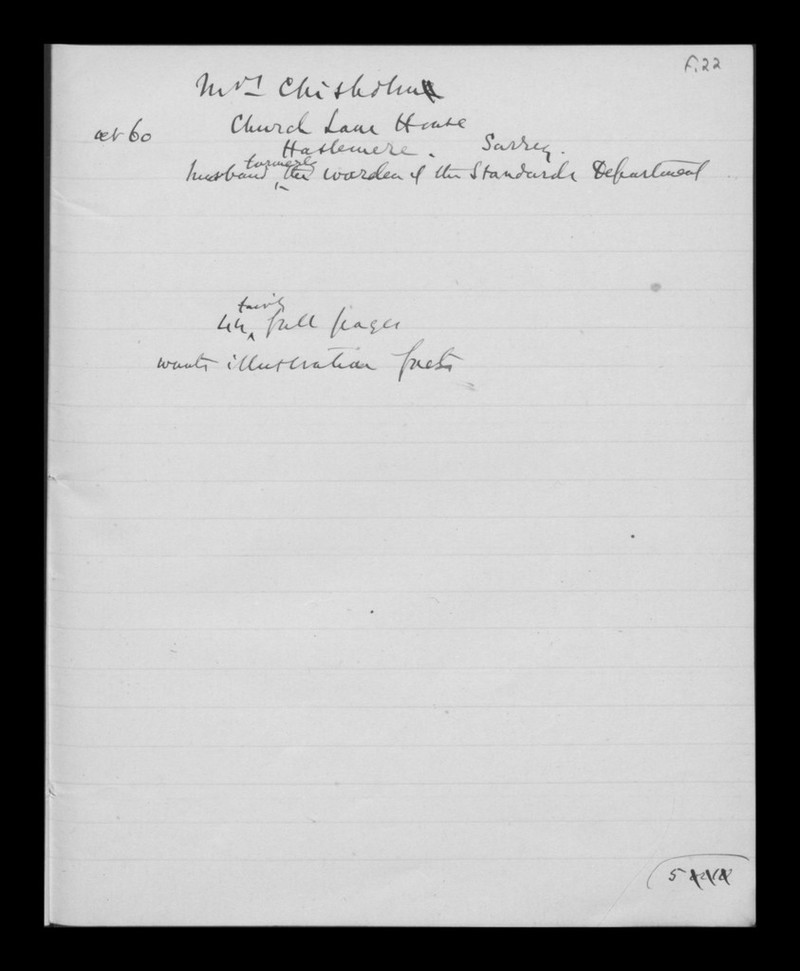 F.22
Mrs Chisholm
aet 60 Church Lane House
Haslemere. Surrey.
husband formerly the warden of the Standards Department
44 fairly full pages
wants illustration facts
5